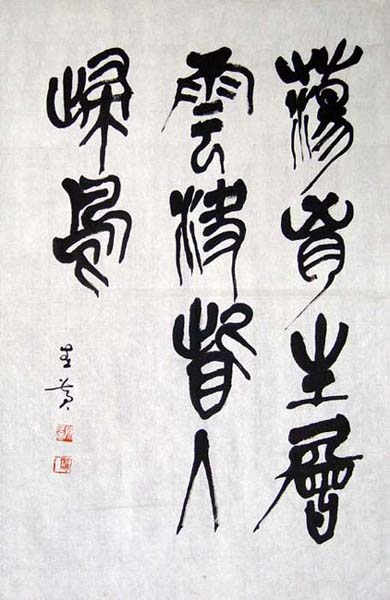 蕩胷生層
雲決眥入
歸鳥